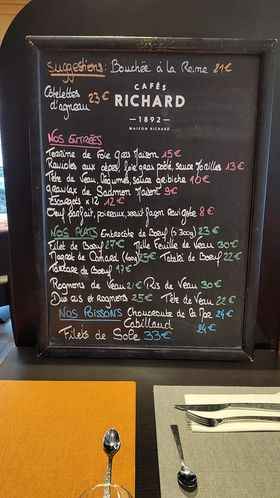 Suggestions: Bouchée à la Reine 21€
Côtelettes d'agneau 23€
CAFÉS
RICHARD
1892
MAISON RICHARD
NOS ENTRÉES
Terrine de Foie Gras Maison 15€
Ravioles aux cèpes, foie gras poêlé, sauce Morilles 13€
Tête de Veau, légumes, sauce gribiche 10€
Gravlax de Saumon Maison 9€
Escargots x12 12€
Oeuf parfait, poireaux, façon 8€
NOS PLATS Entrecôte de Boeuf (± 300g) 23€
Filet de Boeuf 27€ Mille Feuille de Veau 30€
Magret de Canard Tataki de Boeuf 22€
Tartare de Boeuf 17€
Rognons de Veau 21€ Ris de Veau 30€
Duo ris et rognons 25€ Tête de Veau 22€
NOS POISSONS Choucroute de la Mer 24€
Cabillaud 24€
Filets de Sole 33€